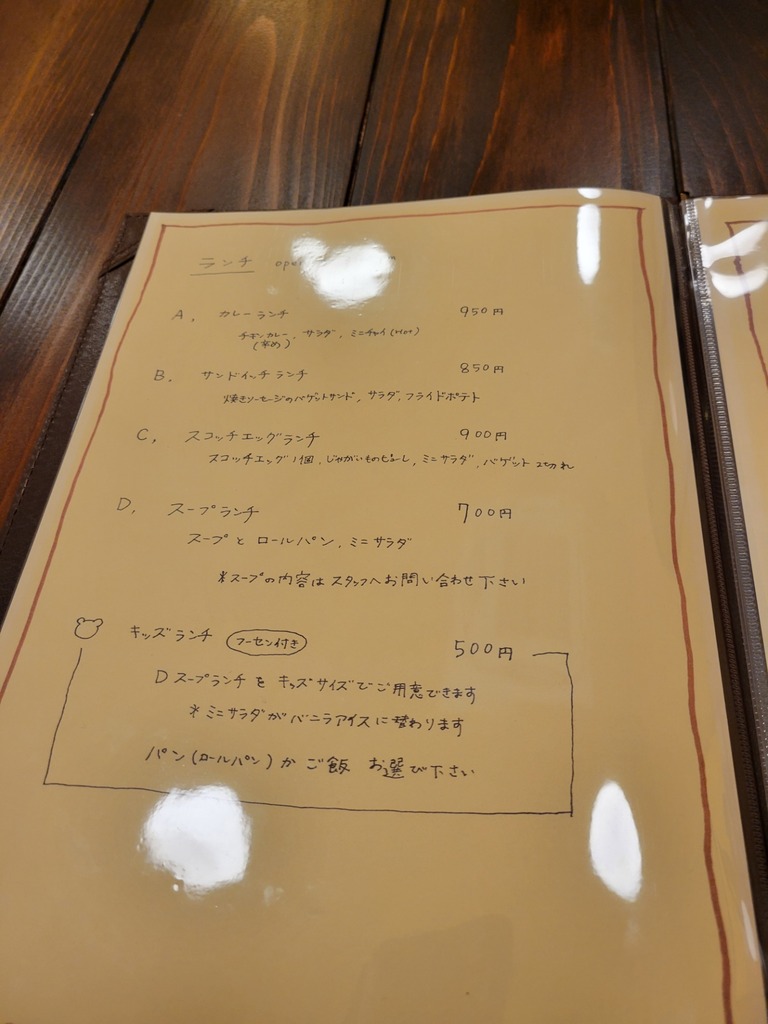 ランチ
A. カレーランチ 950円
チキンカレー, サラダ, ミニチャイ(Hot)
(辛め)
B. サンドイッチランチ 850円
焼きソーセージのバゲットサンド, サラダ, フライドポテト
C. スコッチエッグランチ 900円
スコッチエッグ1個, じゃがいものピューレ, ミニサラダ, バゲット2切れ
D. スープランチ 700円
スープと ロールパン, ミニサラダ
*スープの内容は スタッフへお問い合わせ下さい
キッズランチ フーセン付き 500円
D スープランチを キッズサイズでご用意できます
*ミニサラダがバニラアイスに替わります
パン(ロールパン)か ご飯 お選び下さい